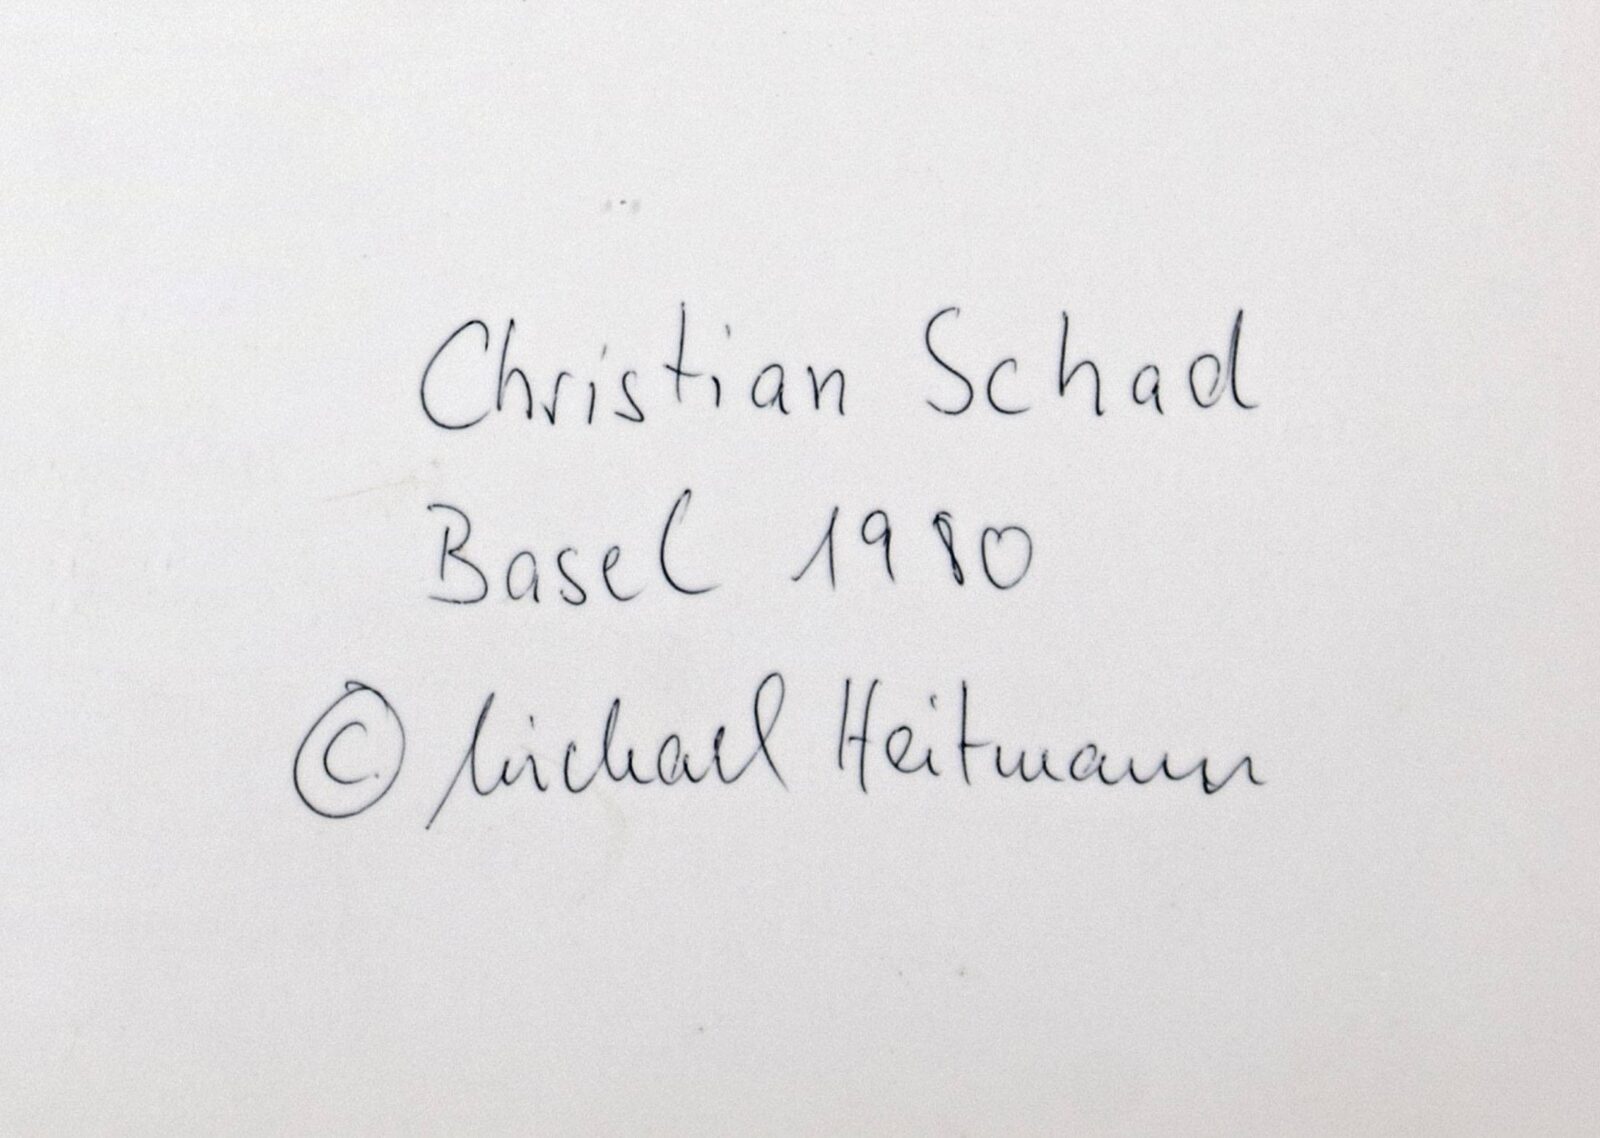 Christian Schad
Basel 1980
© Michael Heitmann